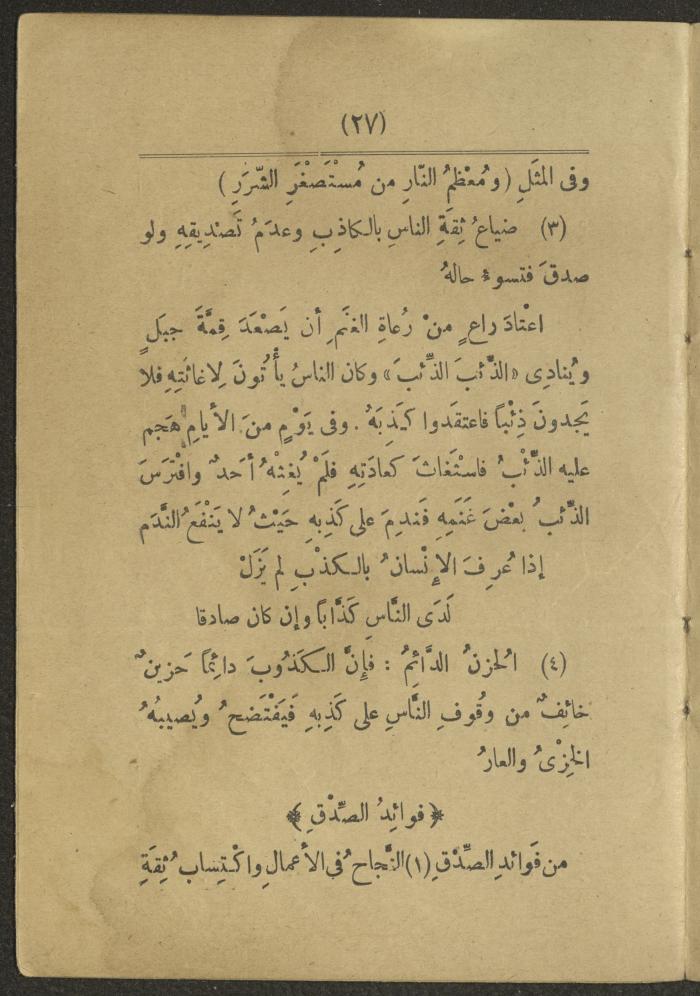 (٢٧)
وفى المثَلِ (ومُعْظمُ النّارِ من مُسْتَصْغَرِ الشّرَرِ)
(٣) ضياعُ ثِقَةِ الناسِ بالكاذِبِ وعدَمُ تَصْدِيقِهِ ولو
صدقَ فتسوءُ حالهُ
اعْتادَ راعٍ منْ رُعاةِ الغنَمِ أن يَصْعَدَ قِمَّةَ جبَلٍ
ويُنادِى «الذِّئبَ الذِّئبَ» وكان الناسُ يأْتُونَ لِاغاثَتِهِ فلا
يَجدونَ ذِئْباً فاعتقَدوا كَذِبَهُ. وفى يَوْمٍ منَ الأيامِ هَجم
عليه الذِّئْبُ فاسْتَغاثَ كعادَتِهِ فلَمْ يُغِثْهُ أحدٌ وافْتَرَسَ
الذِّئبُ بعْضَ غَنَمِهِ فَندِمَ على كَذِبِهِ حَيْثُ لا يَنْفَعُ النَّدَم
إذا عُرِفَ الإِنْسانُ بالكذْبِ لم يَزَلْ
لَدَى النَّاسِ كَذَّاباً وإن كان صادقا
(٤) الحُزنُ الدَّائِمُ : فإِنَّ الكَذُوبَ دائِماً حَزينٌ
خائِفٌ من وقُوفِ النَّاسِ على كَذِبهِ فَيَفْتَضحُ ويُصيبُهُ
الخِزْىُ والعارُ
﴿ فوائِدُ الصِّدْقِ ﴾
من فَوائدِ الصِّدْقِ (١) النَّجاحُ فى الأعمالِ واكْتِسابُ ثِقَةِ